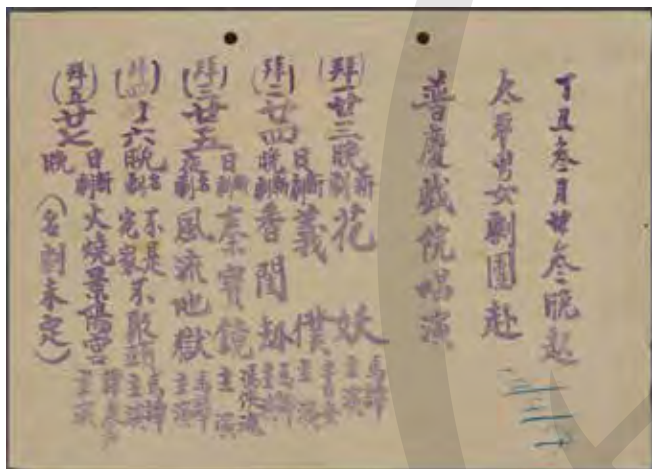 丁丑叁月廿叁晚起
太平男女劇團赴
普慶戲院唱演
(拜一)廿三晚新劇 花妖 馬譚主演
(拜二)廿四日新劇 義僕 主演
晚新劇 香閨劫 馬譚主演
(拜三)廿五日新劇 秦寶鏡 主演
夜名劇 風流地獄 馬譚主演
(拜四)廿六晚名劇 不是冤家不聚頭 馬譚主演
(拜五)廿七日新劇 火燒景陽宮 主演
晚 (名劇未定)